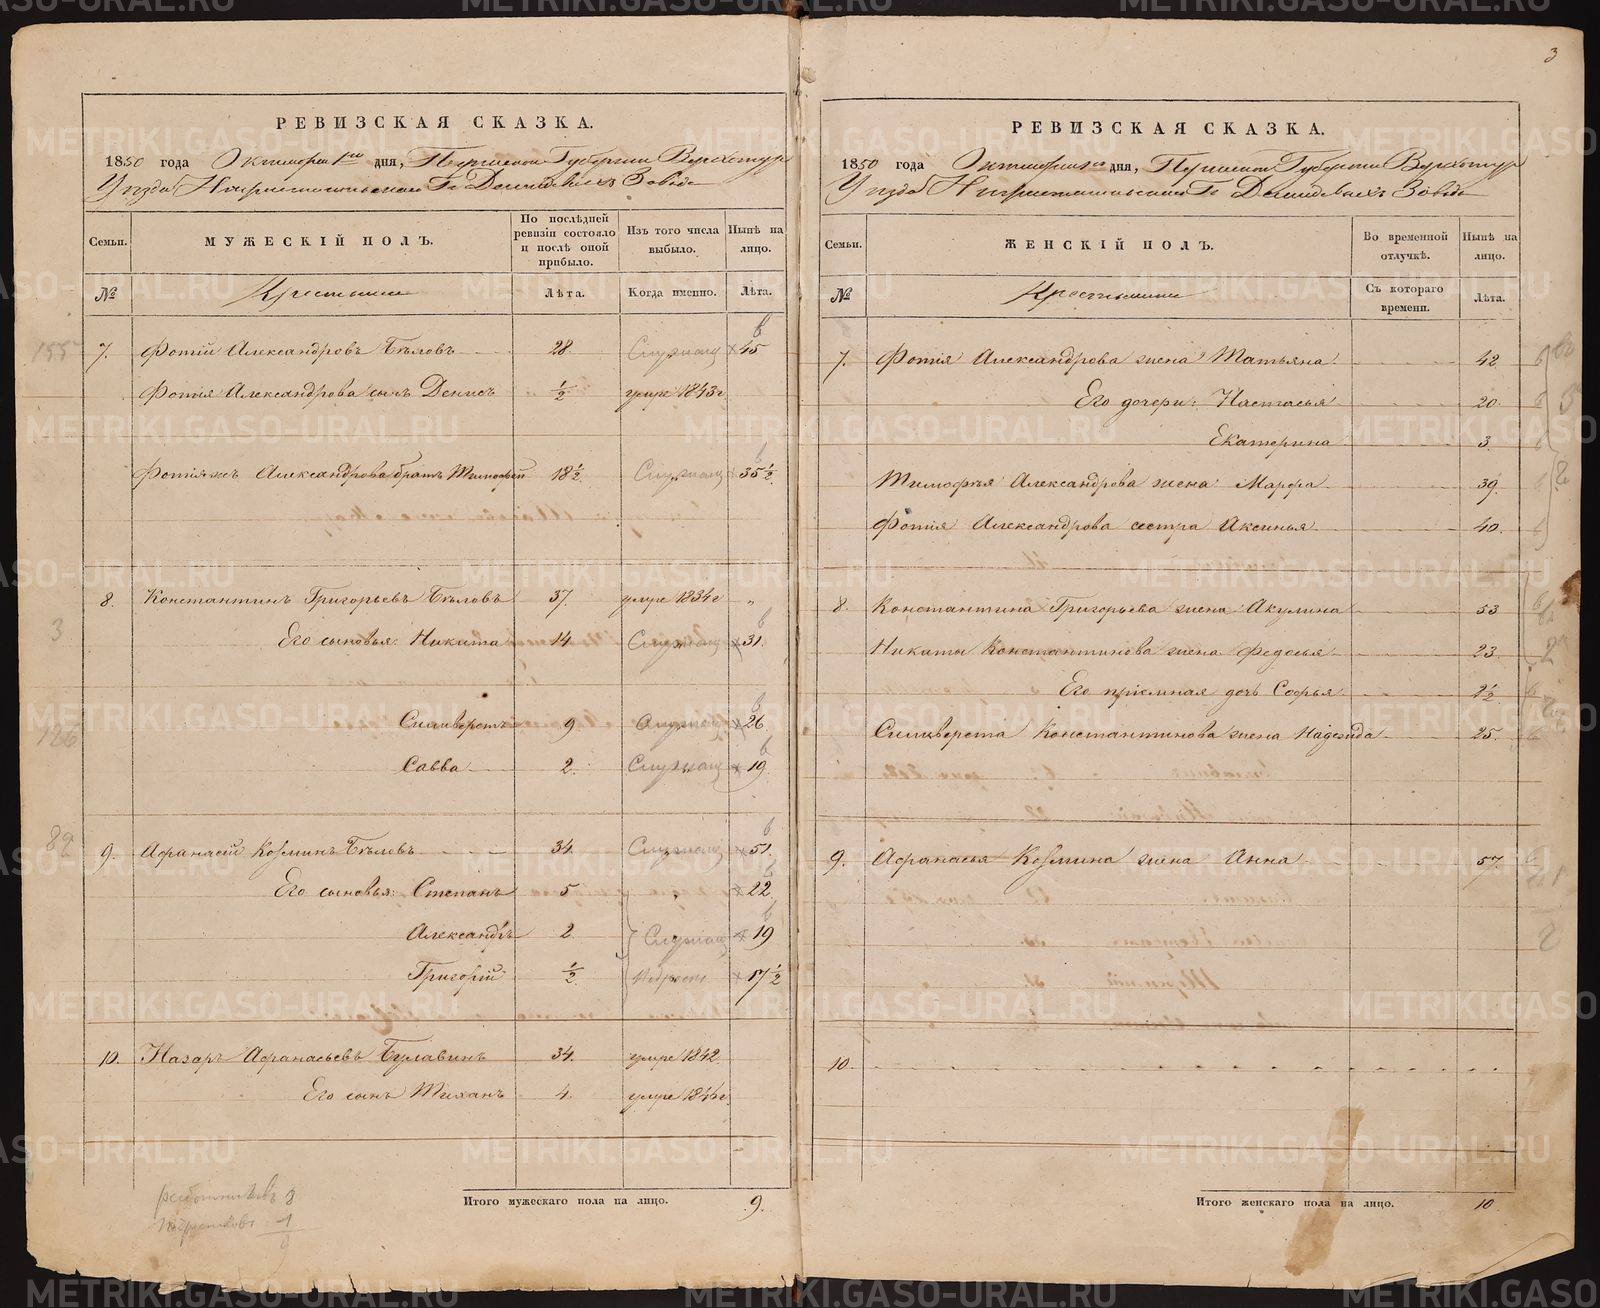 3
РЕВИЗСКАЯ СКАЗКА.
1850 года Октября 1го дня, Пермской Губернии Верхотур
Уезда Нижнетагильскаго Гг Демидовыхъ Завода
Семьи.
МУЖЕСКІЙ ПОЛЪ.
По послѣдней ревизіи состояло и послѣ оной прибыло.
Изъ того числа выбыло.
Нынѣ на лицо.
№
Крестьяне
Лѣта.
Когда именно.
Лѣта.
155 7. Фотій Александровъ Бѣловъ 28 45
Фотія Александрова сынъ Денисъ ½ умре 1843г
Фотія жъ Александрова братъ Тимофей 18½ 35½
8. Константинъ Григорьевъ Бѣловъ 37. умре 1834г „
3 Его сыновья: Никита 14 31.
126 Силиверстъ 9 26
Савва 2. 19
82 9. Афанасій Козминъ Бѣловъ 34. 51.
Его сыновья: Степанъ 5 „ 22
Александръ 2. 19
Григорій ½ 17½
10. Назаръ Афанасьевъ Булавинъ 34. умре 1842
Его сынъ Тиханъ 4. умре 1846г
работниковъ 8
подростковъ 1
9
Итого мужескаго пола на лицо. 9.
РЕВИЗСКАЯ СКАЗКА.
1850 года Октября 1го дня, Пермской Губерніи Верхотур
Уезда Нижнетагильскаго Гг Демидовыхъ Завода
Семьи.
ЖЕНСКІЙ ПОЛЪ.
Во временной отлучкѣ.
Нынѣ на лицо.
№
Крестьянки
Съ котораго времени.
Лѣта.
7. Фотія Александрова жена Татьяна 42
Его дочери: Настасья 20.
Екатерина 3.
Тимофѣя Александрова жена Марфа 39.
Фотія Александрова сестра Аксинья 40.
8. Константина Григорьева жена Акулина 53
Никиты Константинова жена Федосья 23
Его пріемная дочь Софья 2½
Силиверста Константинова жена Надежида 25.
9. Афанасья Козмина жена Анна 57.
10.
Итого женскаго пола на лицо. 10
METRIKI.GASO-URAL.RU